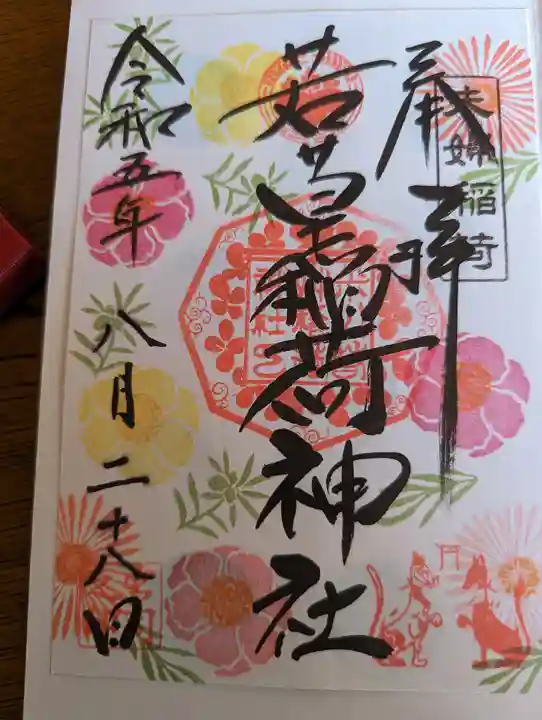 夫婦稲荷
奉拝
若宮稲荷神社
令和五年八月二十八日